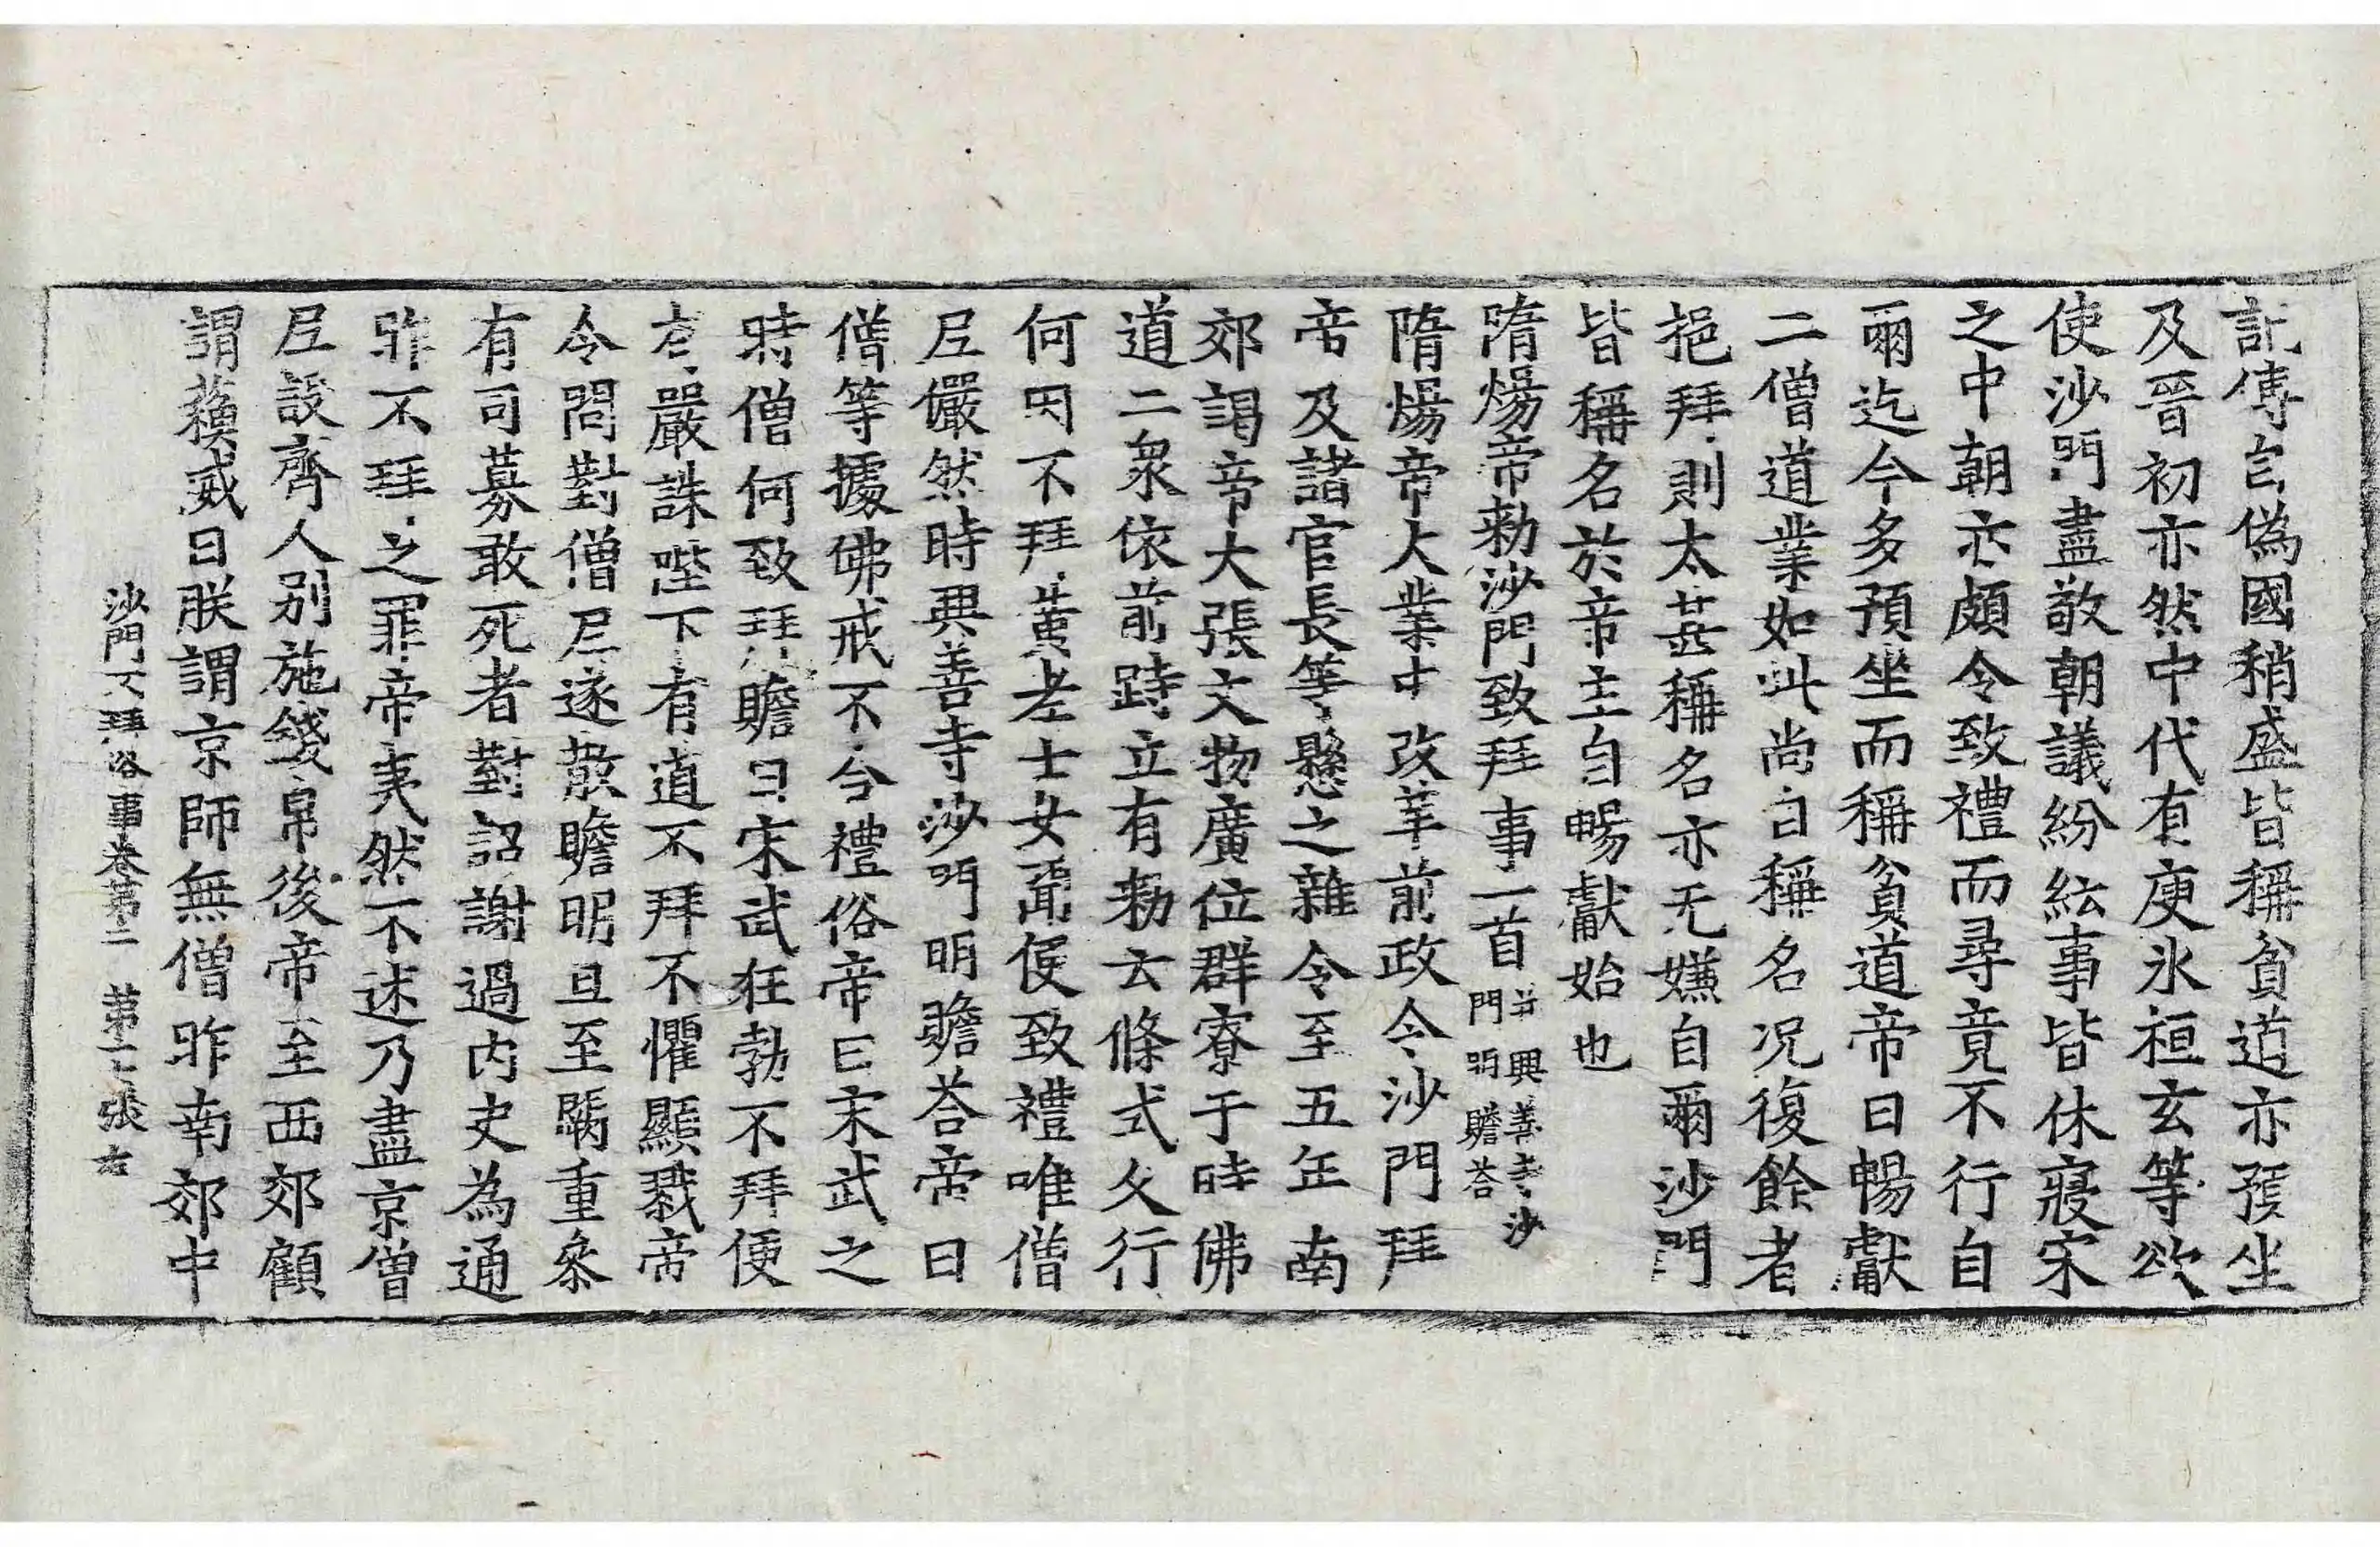 記傳自僞國稍盛皆稱貧道亦預坐
及晉初亦然中代有庾氷桓玄等欲
使沙門盡敬朝議紛紜事皆休寢宋
之中朝亦頗令致禮而尋竟不行自
爾迄今多預坐而稱貧道帝曰暢獻
二僧道業如此尚自稱名况復餘者
挹拜則太甚稱名亦无嫌自爾沙門
皆稱名於帝主自暢獻始也
隋煬帝勑沙門致拜事一首并興善寺沙門明贍荅
隋煬帝大業中改革前政令沙門拜
帝及諸官長等懸之雜令至五年南
郊謁帝大張文物廣位群寮于時佛
道二衆依前跱立有勑云條式久行
何因不拜黃老士女聞便致禮唯僧
尼儼然時興善寺沙門明贍荅帝曰
僧等據佛戒不令禮俗帝曰宋武之
時僧何致拜贍曰宋武狂勃不拜便
有嚴誅陛下有道不拜不懼顯戮帝
令問對僧尼遂散贍明旦至闕重叅
有司募敢死者對詔謝過内史為通
昨不拜之罪帝夷然不述乃盡京僧
尼設齊人别施錢帛後帝至西郊顧
謂蘇威曰朕謂京師無僧昨南郊中
沙門不拜俗事卷第二　第十七張　右